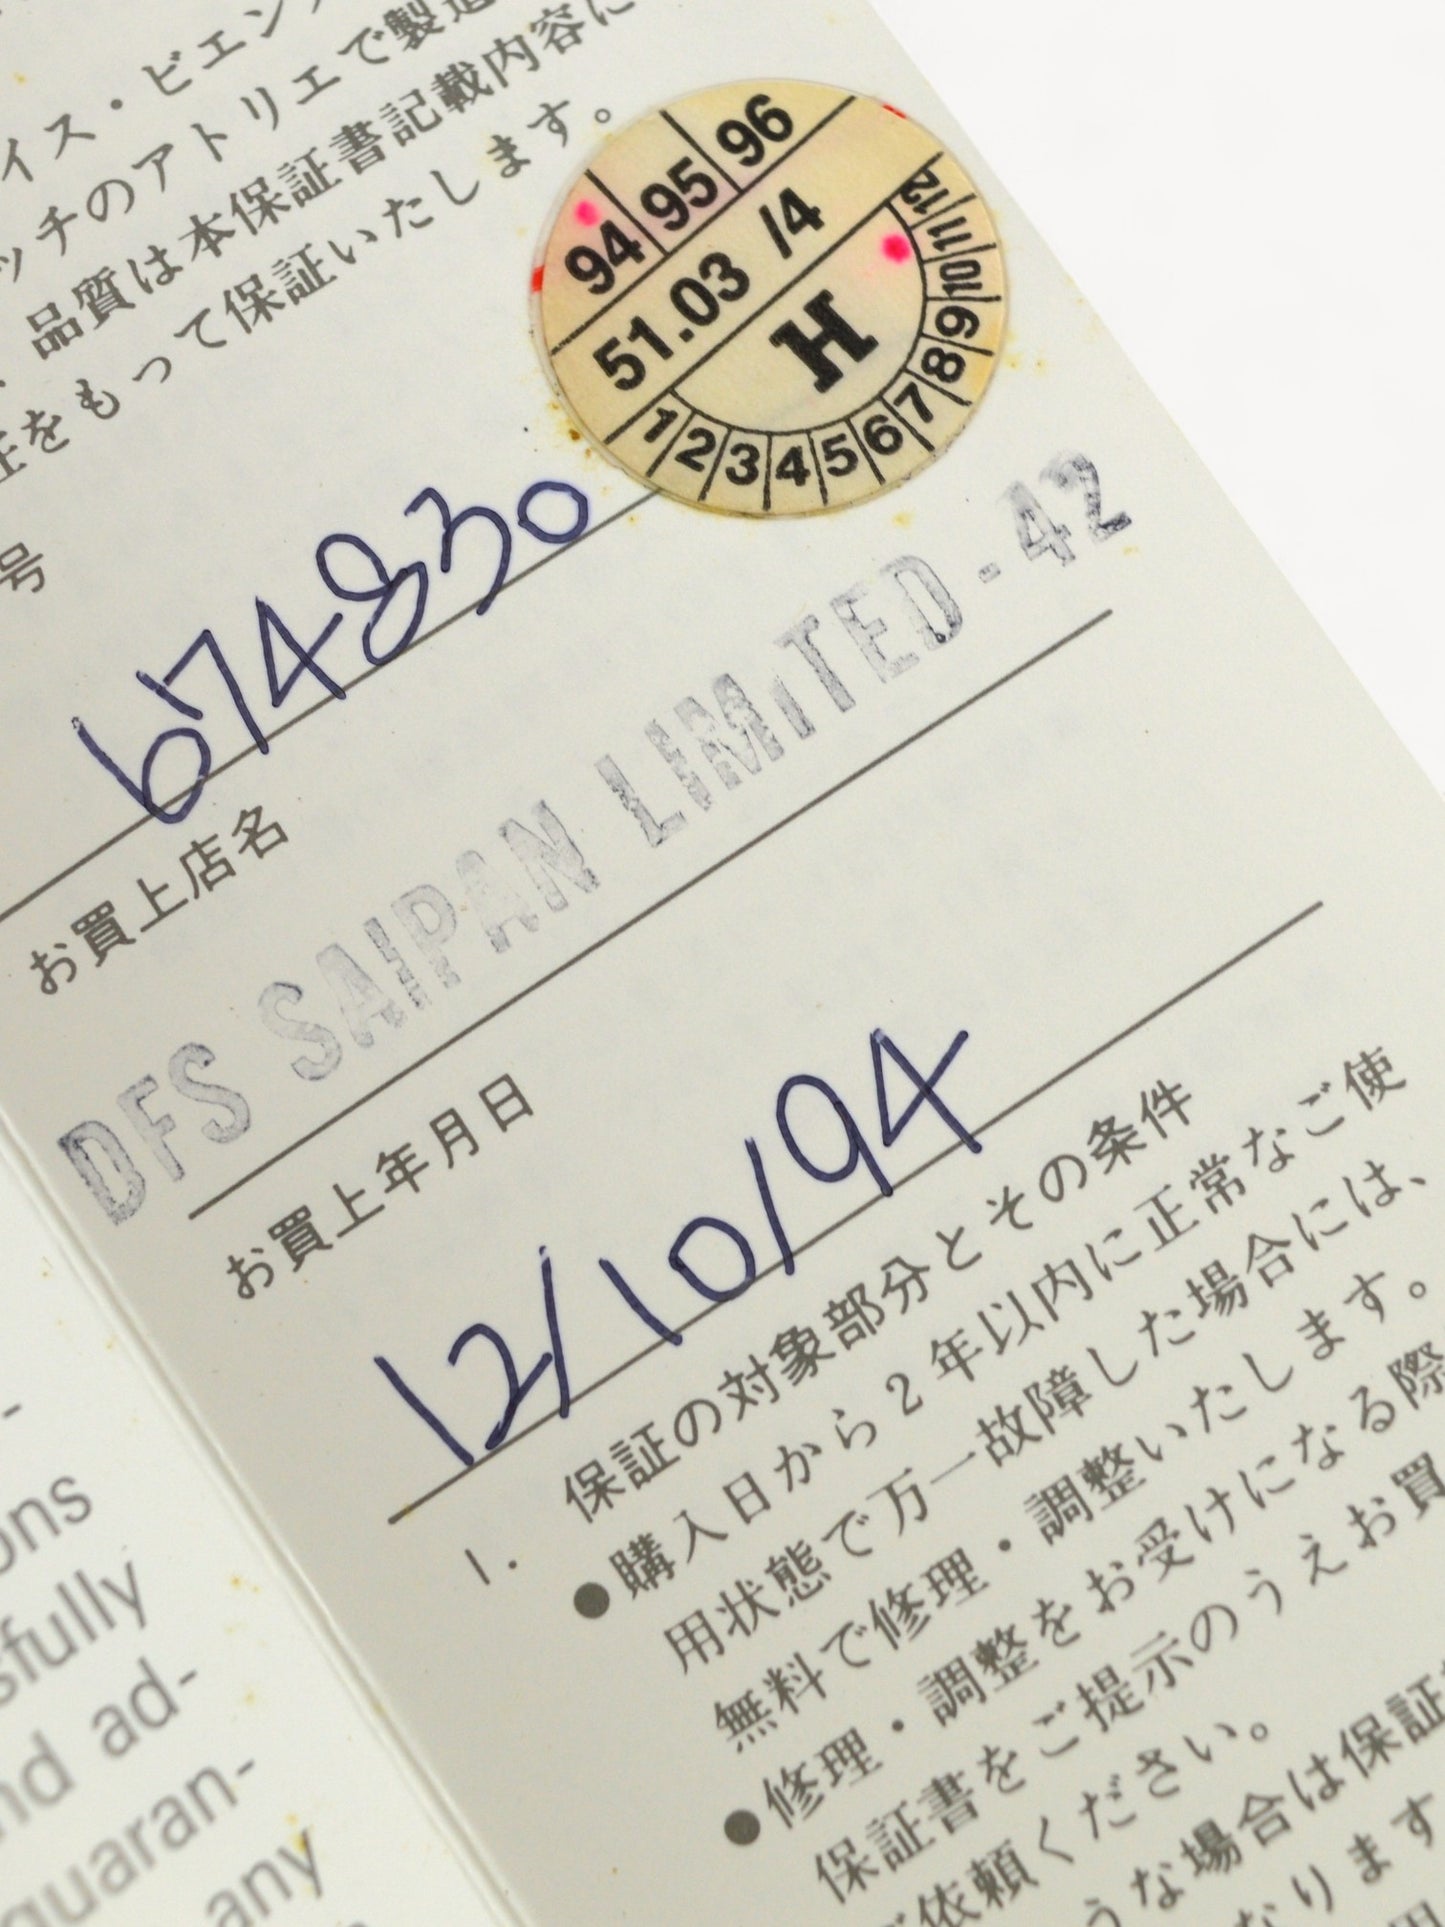 イス・ビエン
ッチのアトリエで製造
品質は本保証書記載内容に
任をもって保証いたします。
94 95 96
51.03 /4
H
1 2 3 4 5 6 7 8 9 10 11 12
号
674830
お買上店名
DFS SAIPAN LIMITED-42
お買上年月日
12/10/94
1. 保証の対象部分とその条件
●購入日から2年以内に正常なご使
用状態で万一故障した場合には、
無料で修理・調整いたします。
●修理・調整をお受けになる際
保証書をご提示のうえお買
ご依頼ください。
うな場合は保証
なります
ons
sfully
nd ad-
guaran-
any